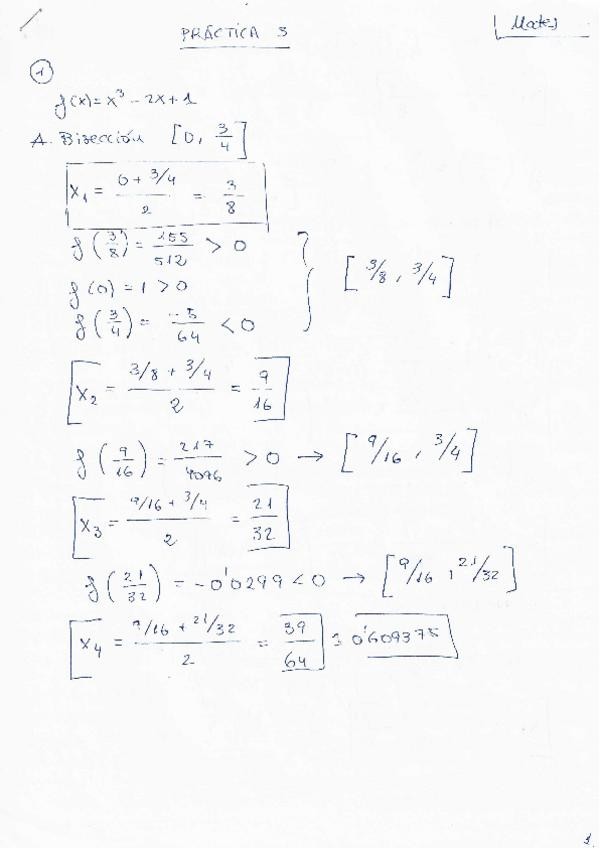 PRÁCTICA 3
Mates
1
f(x) = x³ - 2x + 1
A. Bisección [0, 3/4]
x₁ = (0 + 3/4)/2 = 3/8
f(3/8) = 155/512 > 0
f(0) = 1 > 0
f(3/4) = -5/64 < 0
[3/8, 3/4]
x₂ = (3/8 + 3/4)/2 = 9/16
f(9/16) = 217/4096 > 0 → [9/16, 3/4]
x₃ = (9/16 + 3/4)/2 = 21/32
f(21/32) = -0'0299 < 0 → [9/16, 21/32]
x₄ = (9/16 + 21/32)/2 = 39/64 = 0'609375
1